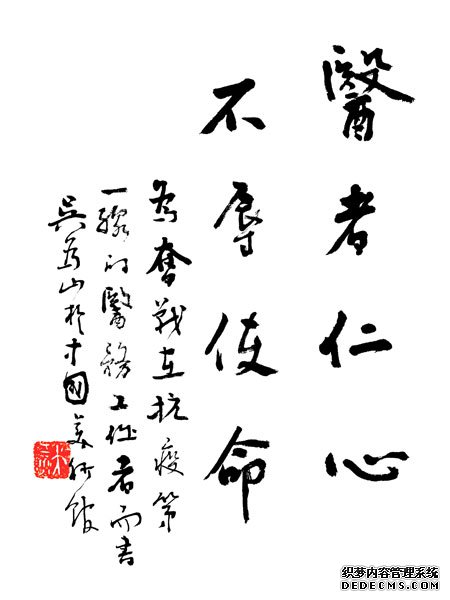 醫者仁心
不辱使命
為奮戰在抗疫第
一線的醫務工作者而書
吳為山於中國美術館
织梦内容管理系统
DEDECMS.COM